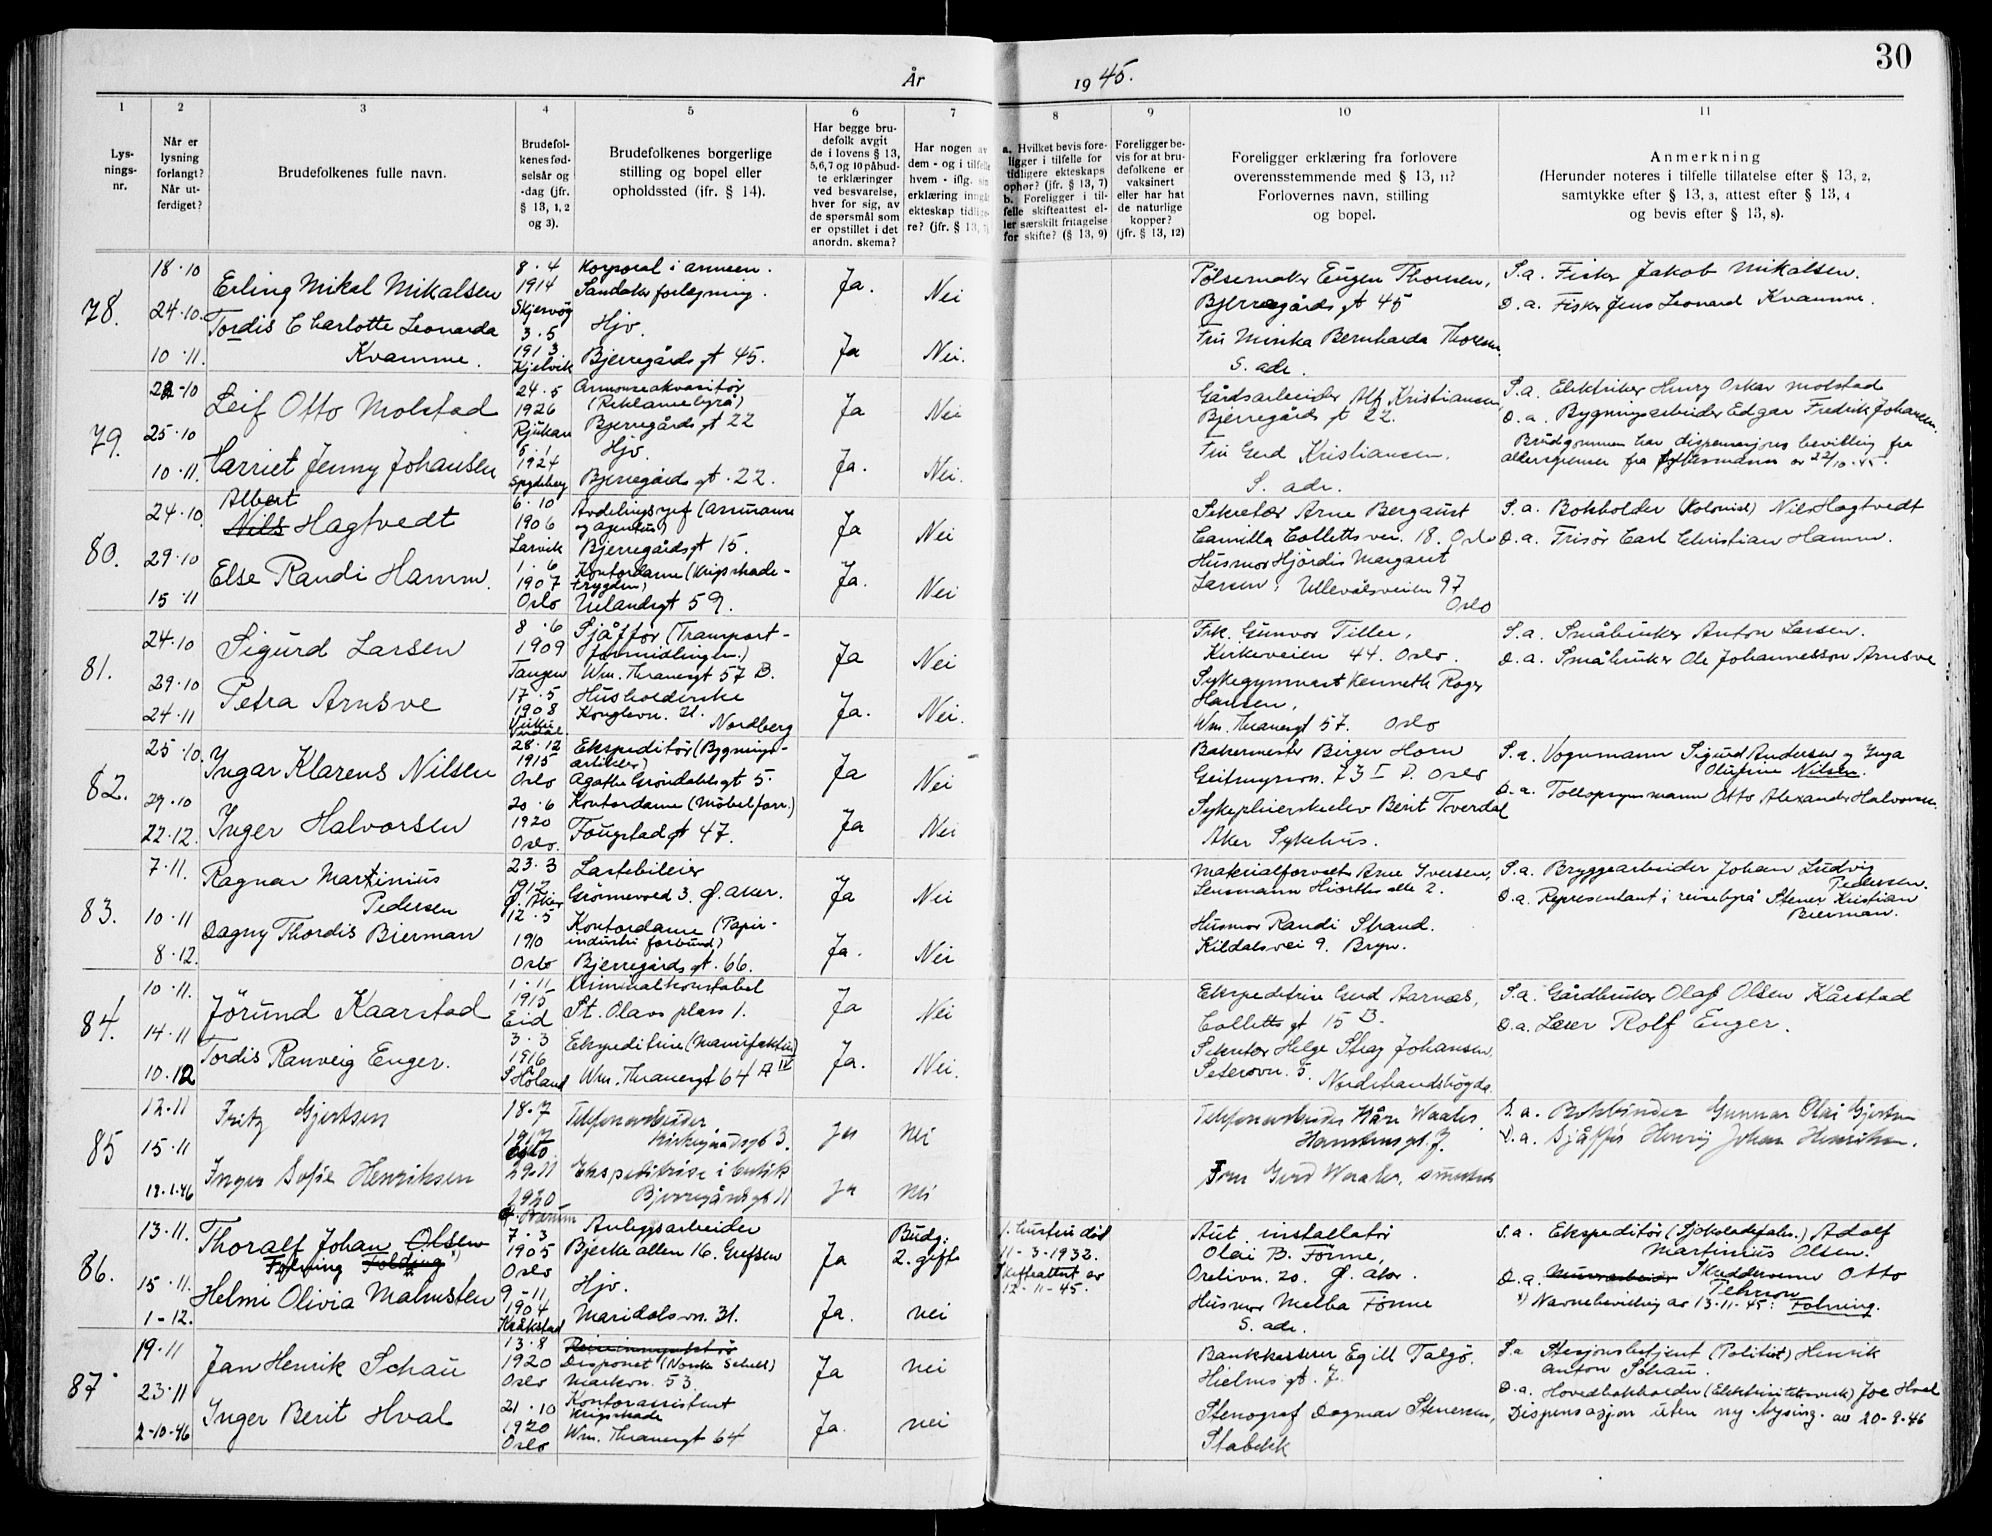 År 1945.
30
1 2 3 4 5 6 7 8 9 10 11
Lys-
nings-
nr.
Når er
lysning
forlangt?
Når ut-
ferdiget?
Brudefolkenes fulle navn.
Brudefol-
kenes fød-
selsår og
-dag (jfr.
§ 13, 1, 2
og 3).
Brudefolkenes borgerlige
stilling og bopel eller
opholdssted (jfr. § 14).
Har begge bru-
defolk avgit
de i lovens § 13,
5,6,7 og 10 påbud-
te erklæringer
ved besvarelse,
hver for sig, av
de spørsmål som
er opstillet i det
anordn. skema?
Har nogen av
dem - og i tilfelle
hvem - iflg. sin
erklæring inngått
ekteskap tidlige-
re? (jfr. § 13, 7)
a. Hvilket bevis fore-
ligger i tilfelle for
tidligere ekteskaps
ophør? (jfr. § 13, 7)
b. Foreligger i til-
felle skifteattest el-
ler særskilt fritagelse
for skifte? (§ 13, 9)
Foreligger be-
vis for at bru-
defolkene er
vaksinert
eller har hat
de naturlige
kopper?
(jfr. § 13, 12)
Foreligger erklæring fra forlovere
overensstemmende med § 13, 11?
Forlovernes navn, stilling
og bopel.
Anmerkning
(Herunder noteres i tilfelle tillatelse efter § 13, 2,
samtykke efter § 13, 3, attest efter § 13, 4
og bevis efter § 13, 8).
78.
18.10
24.10.
10.11.
Erling Mikal Mikalsen
Tordis Charlotte Leonarda
Kvamme.
8.4
1914
Skjervøy
3.5
1913
Kjelvik
Korporal i armeen.
Sandaker forlegning.
Hjv.
Bjerregårds gt 45.
Ja.
Ja
Nei
Nei.
Pølsemaker Eugen Thoresen,
Bjerregårds gt 45
Fru Minka Bernharda Thoresen
S. adr.
S.a. Fisker Jakob Mikalsen.
D.a. Fisker Jens Leonard Kvamme.
79.
22-10
25.10
10.11.
Leif Otto Molstad
Harriet Jenny Johansen
24.5
1926
Rjukan
5.1
1924
Spydeberg
Annonseakvisitør
(Reklamebyrå)
Bjerregårds gt 22
Hjv.
Bjerregårds gt. 22.
Ja
Ja.
Nei
Nei.
Gårdsarbeider Alf Kristiansen
Bjerregårds gt 22.
Fru Gerd Kristiansen.
S. adr.
S.a. Elektriker Henry Oskar Molstad
D.a. Bygningsarbeider Edgar Fredrik Johansen.
Brudgommen har dispensasjons bevilling fra
aldersgrensen fra fylkesmannen av 22/10-45.
80.
24.10.
29.10
15.11
Albert
Nils Hagtvedt
Else Randi Hamm.
6.10
1906
Larvik
1.6
1907
Oslo
Avdelingssjef (Assuranse
og agentur)
Bjerregårdsgt 15.
Kontordame (Krigsskade-
trygden)
Uelandsgt 59.
Ja
Ja.
Nei
Nei
Sekretær Arne Bergaust
Camilla Colletts vei. 18. Oslo
Husmor Hjördis Margaret
Larsen, Ullevålsveien 97
Oslo
S.a. Bokholder (Kolonial) Nils Hagtvedt
D.a. Frisør Carl Christian Hamm.
81.
24.10
29.10
24.11
Sigurd Larsen
Petra Arnsve
8.6
1909
Tangen
17.5
1908
Sjåffør (Transport-
formidlingen.)
Wm. Thranesgt 57 B.
Husholderske
Konglevn. 21.
Nordberg
Ja
Ja.
Nei
Nei.
Frk. Gunvor Tiller,
Kirkeveien 44. Oslo.
Sykegymnast Kenneth Roger
Hansen,
Wm. Thranesgt 57. Oslo
S.a. Småbruker Anton Larsen.
D.a. Småbruker Ole Johannesson Arnsve
82.
25.10.
29.10
22.12.
Yngar Klarens Nilsen
Inger Halvorsen
28.12
1915
Oslo
20.6
1920
Oslo.
Ekspeditør (Bygnings-
artikler)
Agathe Grøndahlsgt 5.
Kontordame (Møbelforr.)
Fougstad gt 47.
Ja
Ja
Nei
Nei
Bakermester Birger Horn
Geitmyrsvn. 73 I D. Oslo
Sykepleierskeelev Berit Tverdal
Aker Sykehus.
S.a. Vognmann Sigurd Andersen og Inga
Olufine Nilsen.
D.a. Tolloppsynsmann Otto Alexander Halvorsen.
83.
7.11.
10.11
8.12.
Ragnar Martinius
Pedersen
Dagny Thordis Bierman
23.3
1912
Ø. Aker
12.5
1910
Oslo
Lastebileier
Grønnevold 3. Ø. Aker.
Kontordame (Papir-
industri forbund)
Bjerregårds gt. 66.
Ja
Ja.
Nei
Nei
Materialforvalt Arne Iversen,
Lensmann Hiorths alle 2.
Husmor Randi Strand.
Kildalsvei 9. Bryn.
S.a. Bryggearbeider Johan Ludvig
Pedersen.
D.a. Representant i reisebyrå Stener Kristian
Bierman.
84.
10.11.
14.11
10.12
Jörund Kaarstad
Tordis Ranveig Enger.
1.11
1915
Eid
3.3
1916
S Höland
Kriminalkonstabel
St. Olavs plass 1.
Ekspeditrise (Manufaktur)
Wm. Thranesgt 64 A IV
Ja
Ja.
Nei
Nei.
Ekspeditrise Gerd Aarnæs,
Colletts gt 15 B.
Sekretær Helge Stray Johansen,
Setersvn. 5. Nordstrandshøgda
S.a. Gårdbruker Olaf Olsen Kårstad
D.a. Lærer Rolf Enger.
85
12.11
15.11
19.1.46
Fritz Gjertsen
Inger Sofie Henriksen
18.7
1917
Oslo
29.11
1920
Telefonarbeider
Kirkegaardsgt 3.
Ekspeditrise i butik
Bjerregårdsgt 11
Ja
Ja
Nei
Nei
Telefonarbeider Kåre Waaler
Fru Gerd Waaler, samested
S.a. Bokbinder Gunnar Olai Gjertsen
D.a. Sjåffør Henry Johan Henriksen.
86.
13.11.
15.11.
1-12.
Thoralf Johan Olsen
Folning
Helmi Olivia Malmsten
7.3
1905
Oslo
9-11,
1904
Kråkstad
Anleggsarbeider
Bjerke alleen 16. Grefsen
Hjv.
Maridalsvn. 31.
Ja
Ja.
Budg:
2. gift
nei
1. hustru död
11-3-1932.
Skifteattest av
12-11-45.
Aut. installatør
Olai B. Fönne,
Orelivn. 20. Ø. Aker.
Husmor Melba Fönne
S. adr.
S.a. Ekspeditör (Sjokoladefabr.) Adolf
Martinius Olsen.
D.a. Murarbeider Skreddersvenn Otto
x) Navnebevilling av 13-11-45: Folning.
87.
19.11
23.11
2-10-46
Jan Henrik Schau
Inger Berit Hval
13.8
1920
Oslo
21.10
1920
Oslo
Disponent (Norske Schell)
Markvn. 53.
Kontorassistent
Krigsskade
Wm. Thranesgt 64
Ja
Ja.
nei
nei
Bankkasserer Egill Talgø.
Hielms gt. 7.
Stenograf Dagmar Stenersen,
Stabekk
S.a Stasjonsbetjent (Politiet) Henrik
Anton Schau.
D.a. Hovedbokholder (Elektrisitetsverk) Joe Hval
Dispensasjon uten ny lysing. av 20-9-46